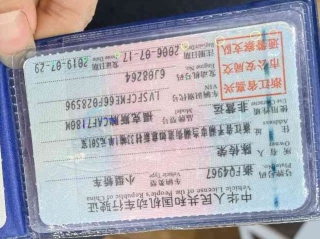 中华人民共和国机动车行驶证
Vehicle License of the People's Republic of China
号牌号码
Plate No.
浙F04967
车辆类型
Vehicle Type
小型轿车
所有人
Owner
住址
Address
使用性质
Use Character
非营运
品牌型号
Model
福克斯牌CAF7180M
车辆识别代号
VIN
发动机号码
Engine No.
6J08264
注册日期
Register Date
2006-07-17
发证日期
Issue Date
2019-07-29
浙江省嘉兴
市公安局交
通警察支队